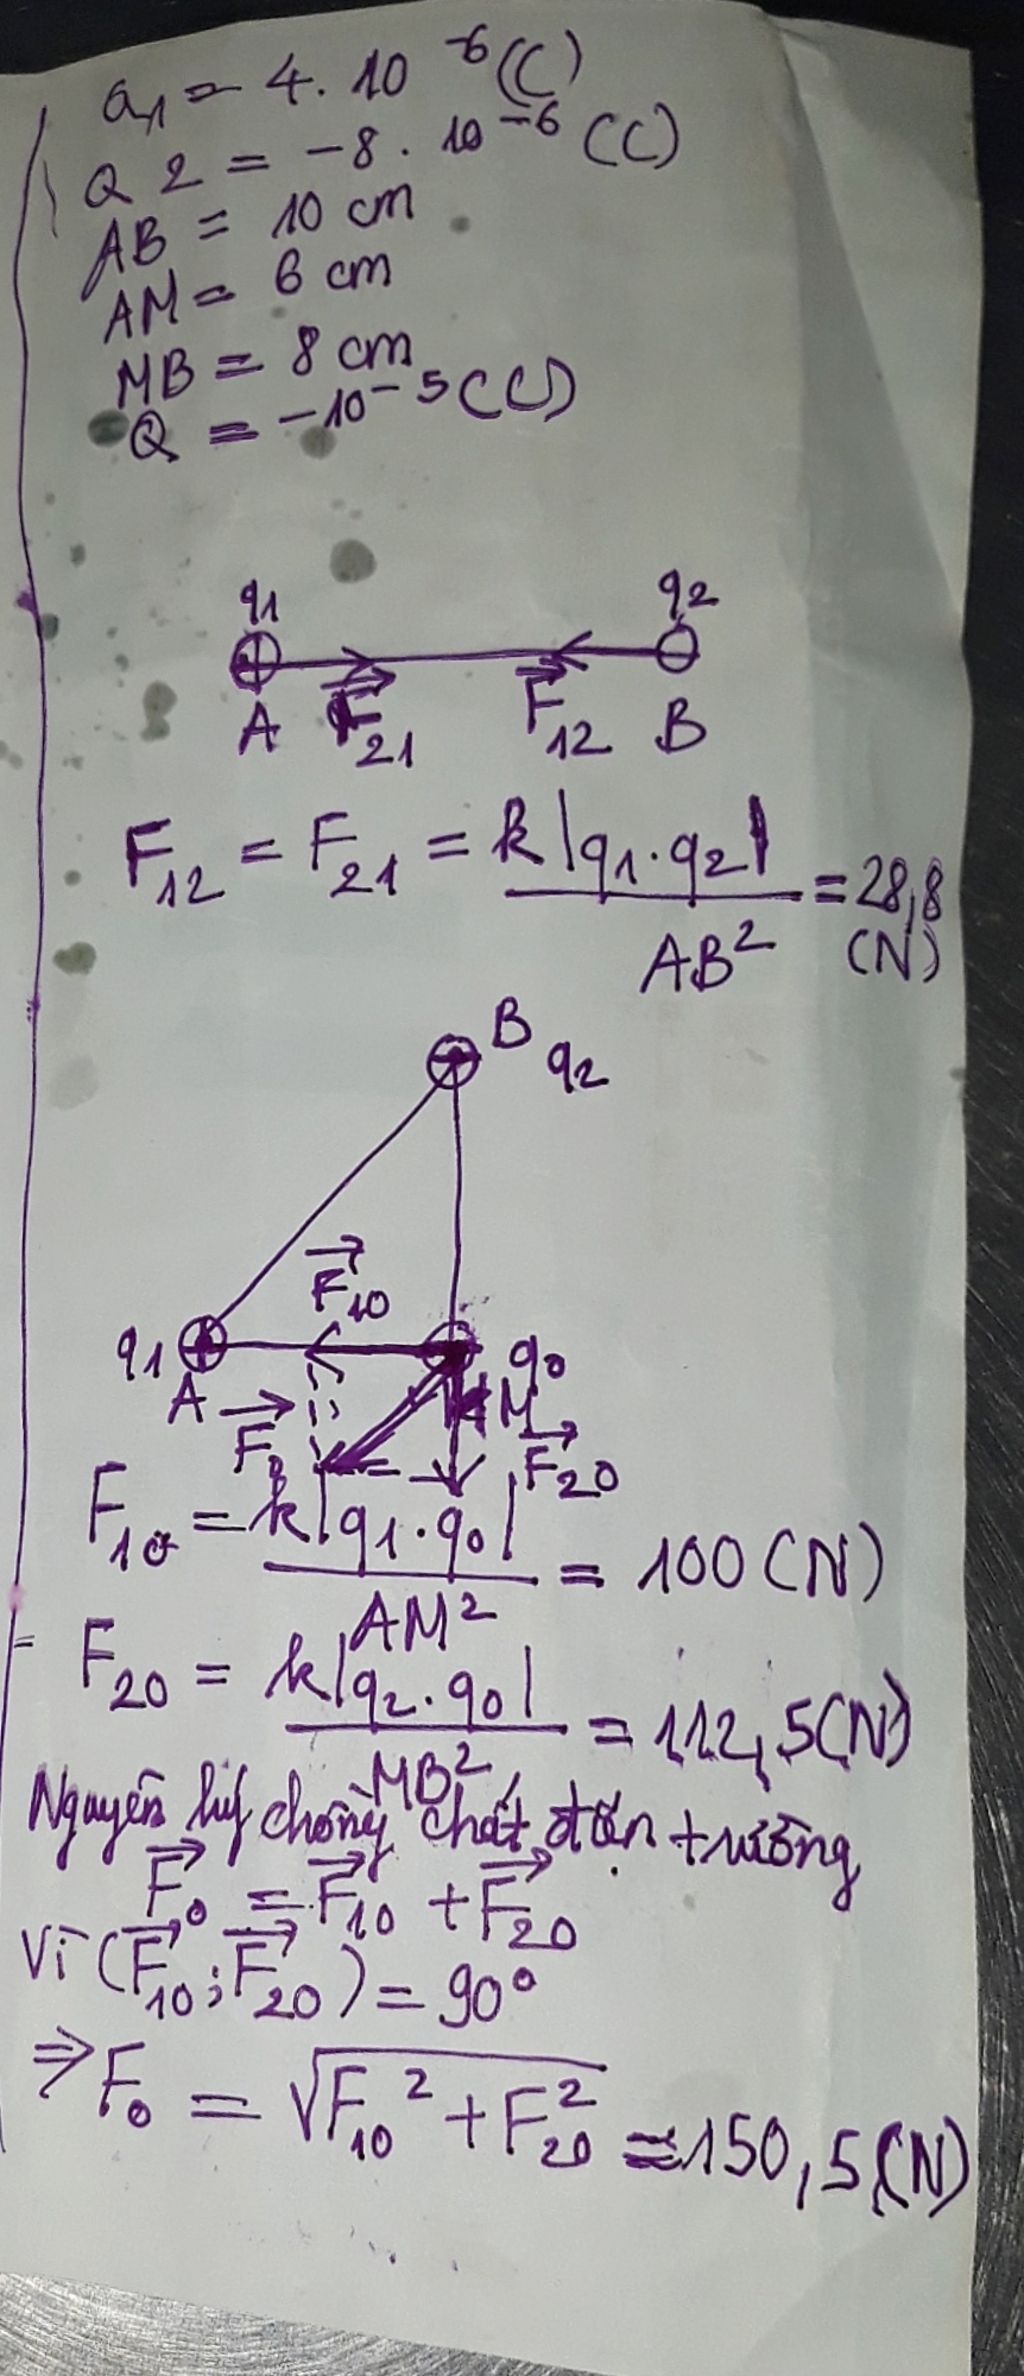 q1 = 4. 10 -6 (C)
Q 2 = -8. 10 -6 (C)
AB = 10 cm
AM = 6 cm
MB = 8 cm
Q = -10 -5 (C)
q1 q2
A F21 F12 B
F12 = F21 = k|q1.q2| / AB² = 28,8 (N)
B q2
F10
q1 q0
A M
F0 F20
F10 = k|q1.q0| / AM² = 100 (N)
F20 = k|q2.q0| / MB² = 112,5(N)
Nguyên lý chồng chất điện trường
F0 = F10 + F20
Vì (F10; F20) = 90°
⇒ F0 = √F10² + F20² ≈ 150,5(N)